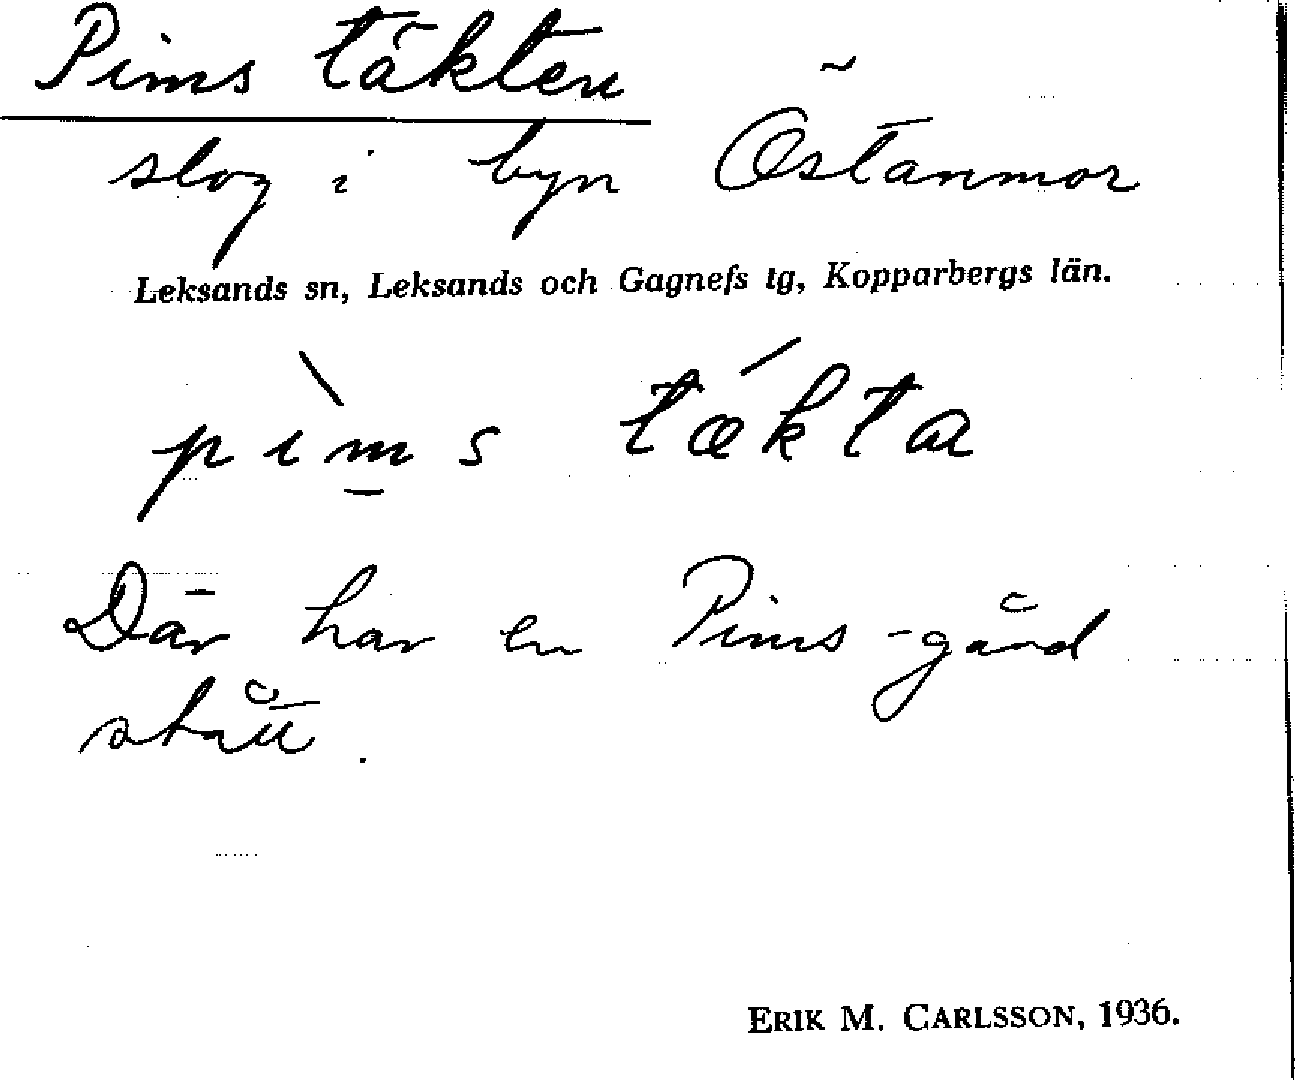 Pims täkten
slog i byn Östanmor
Leksands sn, Leksands och Gagnefs tg, Kopparbergs län.
pìm̲s tǽkta
Där har en Pims-gård
stått.
ERIK M. CARLSSON, 1936.